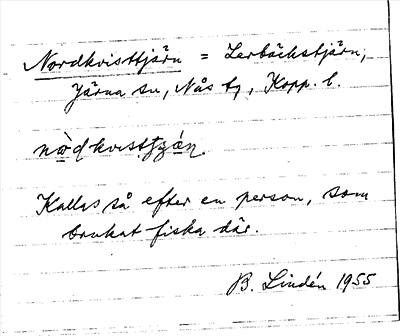 Nordkvisttjärn = Lerbäckstjärn,
Järna sn, Nås tg, Kopp. l.
nòdkvisttjǫ́n
Kallas så efter en person, som
brukat fiska där.
B. Lindén 1955